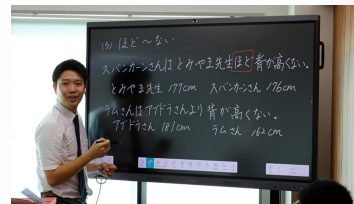 (3) ほど〜ない
スバンカーンさんはとみやま先生ほど背が高くない。
とみやま先生 177cm スバンカーンさん 176cm
ラムさんはアイドラさんより背が高くない。
アイドラさん 181cm ラムさん 162cm